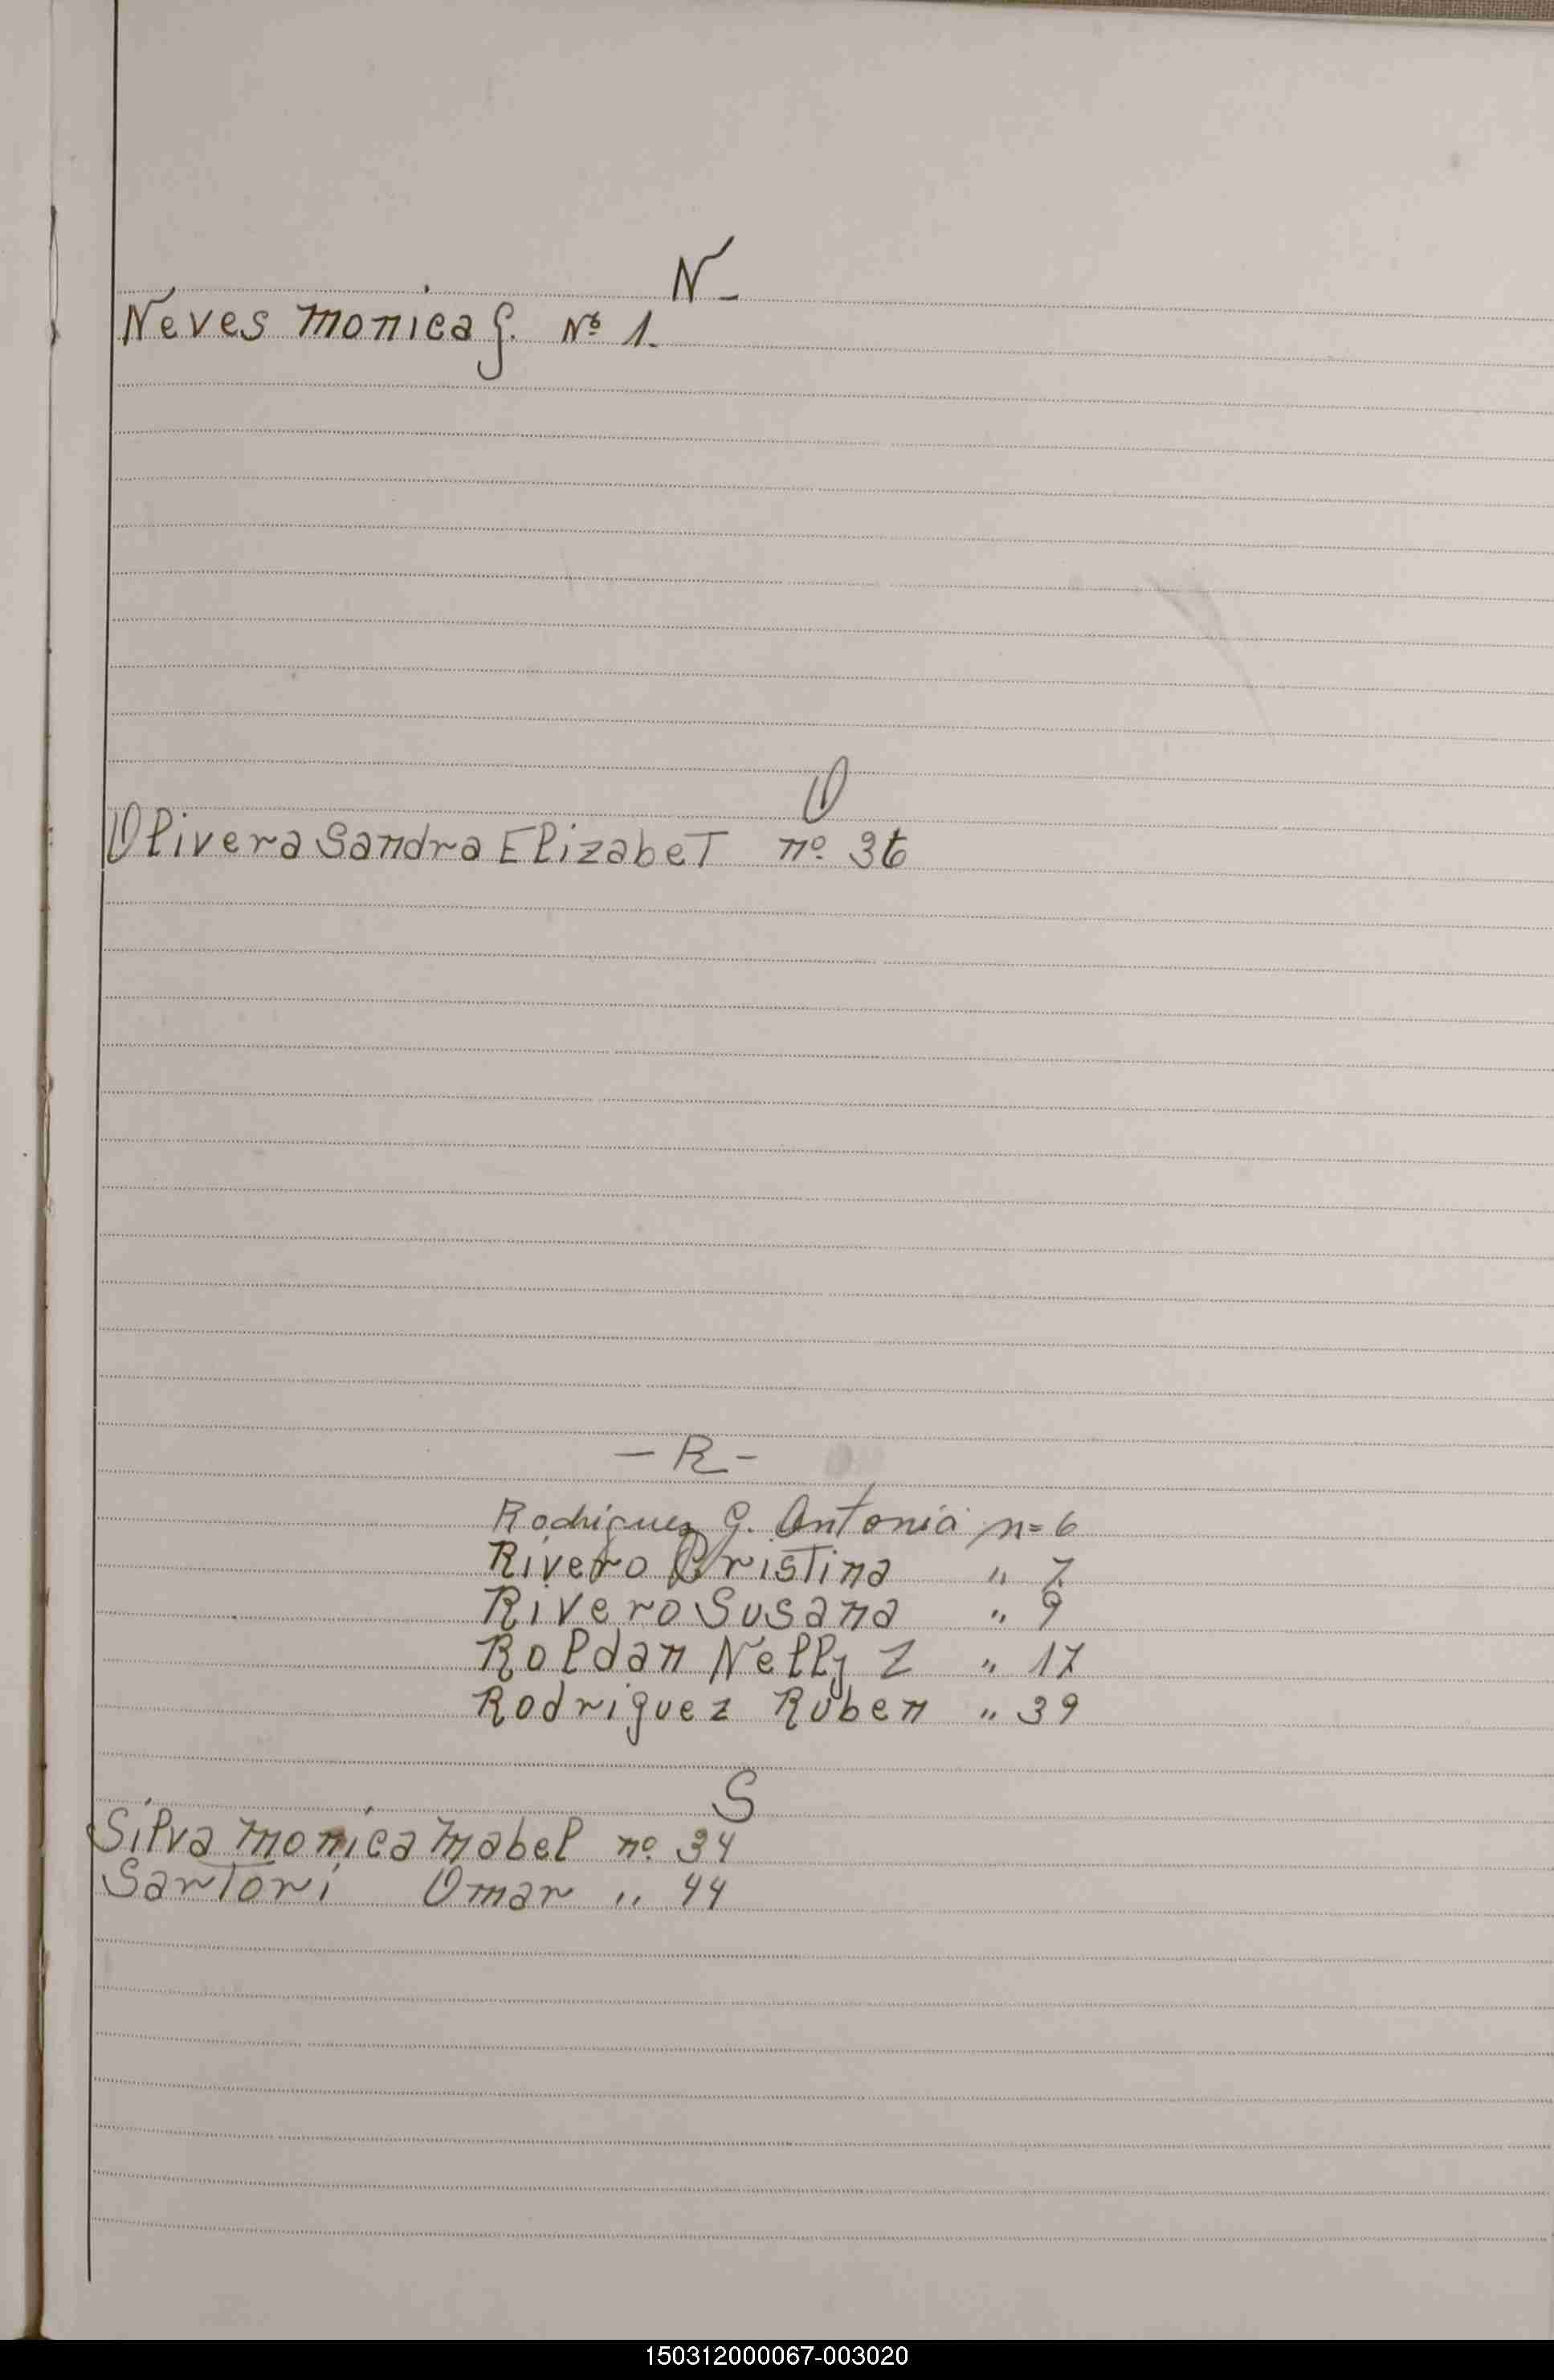 N-
Neves Monica G. Nº 1.
O
Olivera Sandra Elizabet nº 36
- R -
Rodriguez G. Antonia n= 6
Rivero Cristina " 7
Rivero Susana " 9
Roldan Nelly Z " 17
Rodriguez Ruben " 39
S
Silva Monica Mabel nº 34
Santori Omar " 44
150312000067-003020